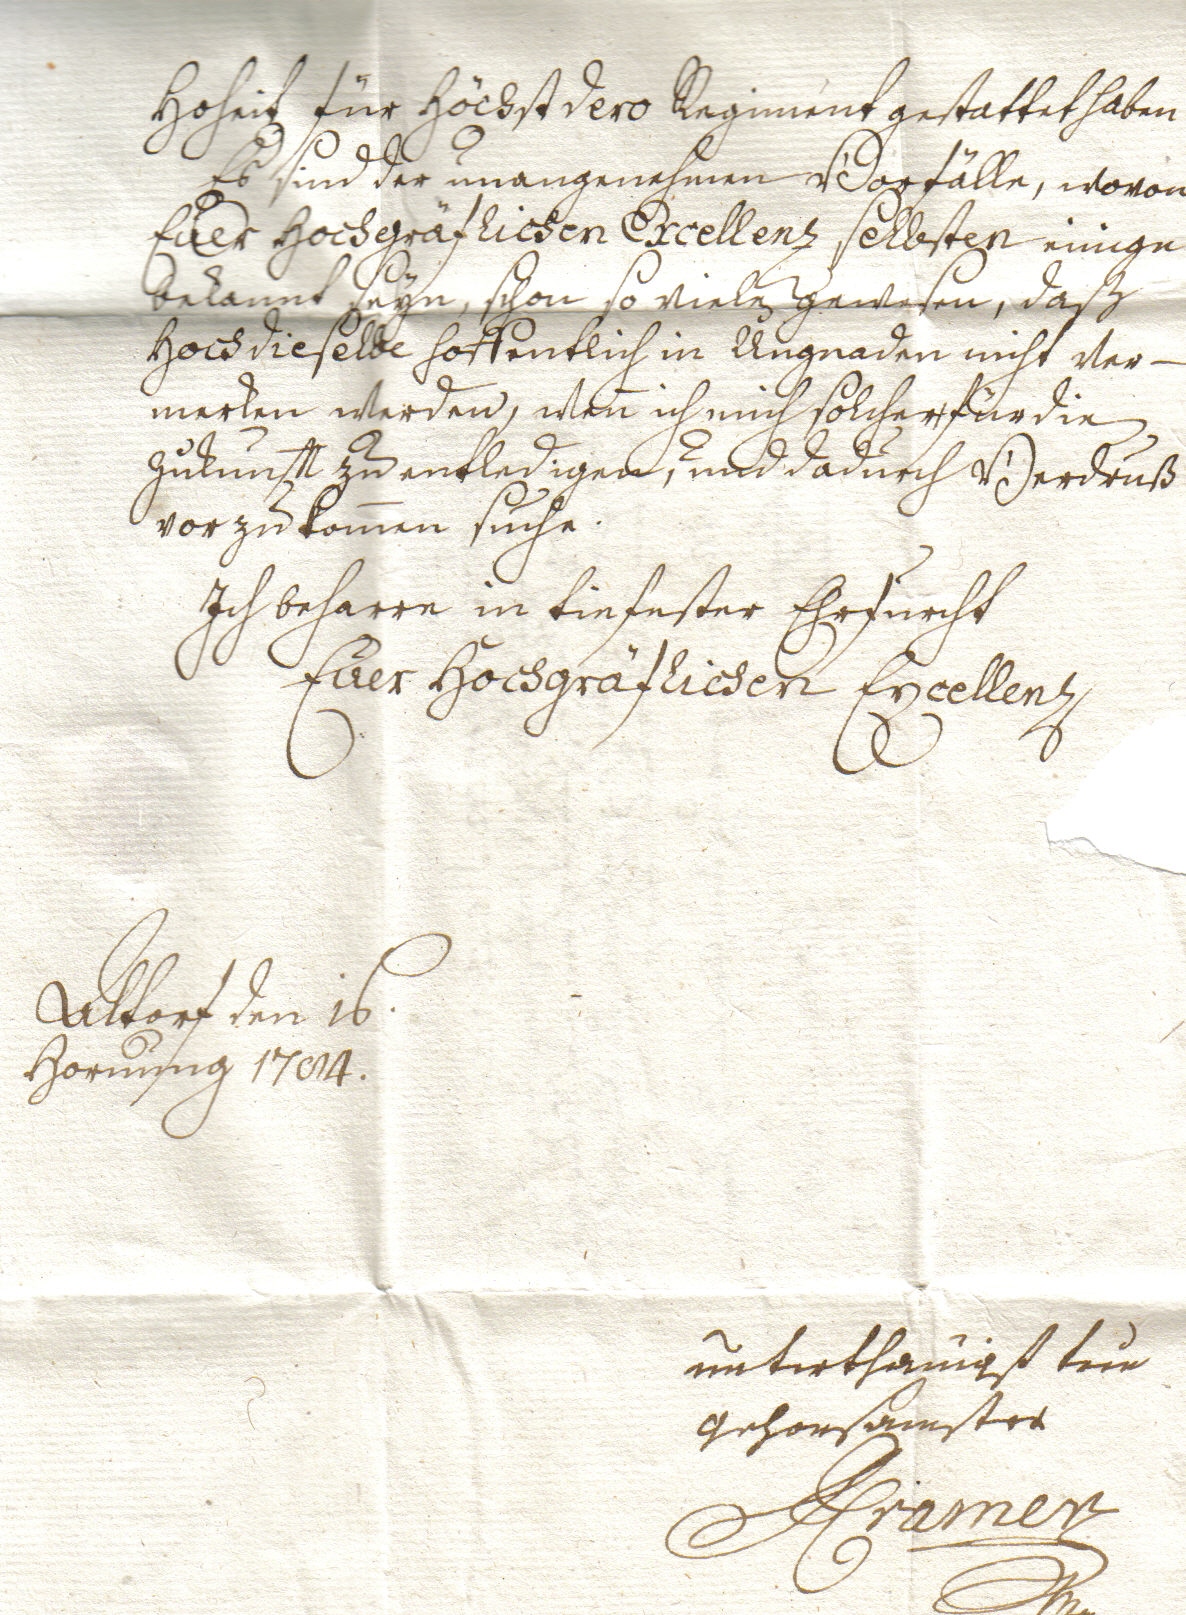 Hoheit für Höchst dero Regiment gestattet haben
Es sind der unangenehmen Vorfälle, wovon
Euer Hochgräflichen Excellenz selbsten einige
bekannt seyn, schon so viele gewesen, daß
Hochdieselbe hoffentlich in Ungnaden nicht ver-
merken werden, wen̄ ich mich solcher für die
Zukunft zu entledigen, und dadurch Verdruß
vorzukom̄en suche.
Ich beharre in tiefester Ehrfurcht
Euer Hochgräflichen Excellenz
Altorf den 16.
Hornung 1784.
unterthänigst treu
gehorsamster
Cramer